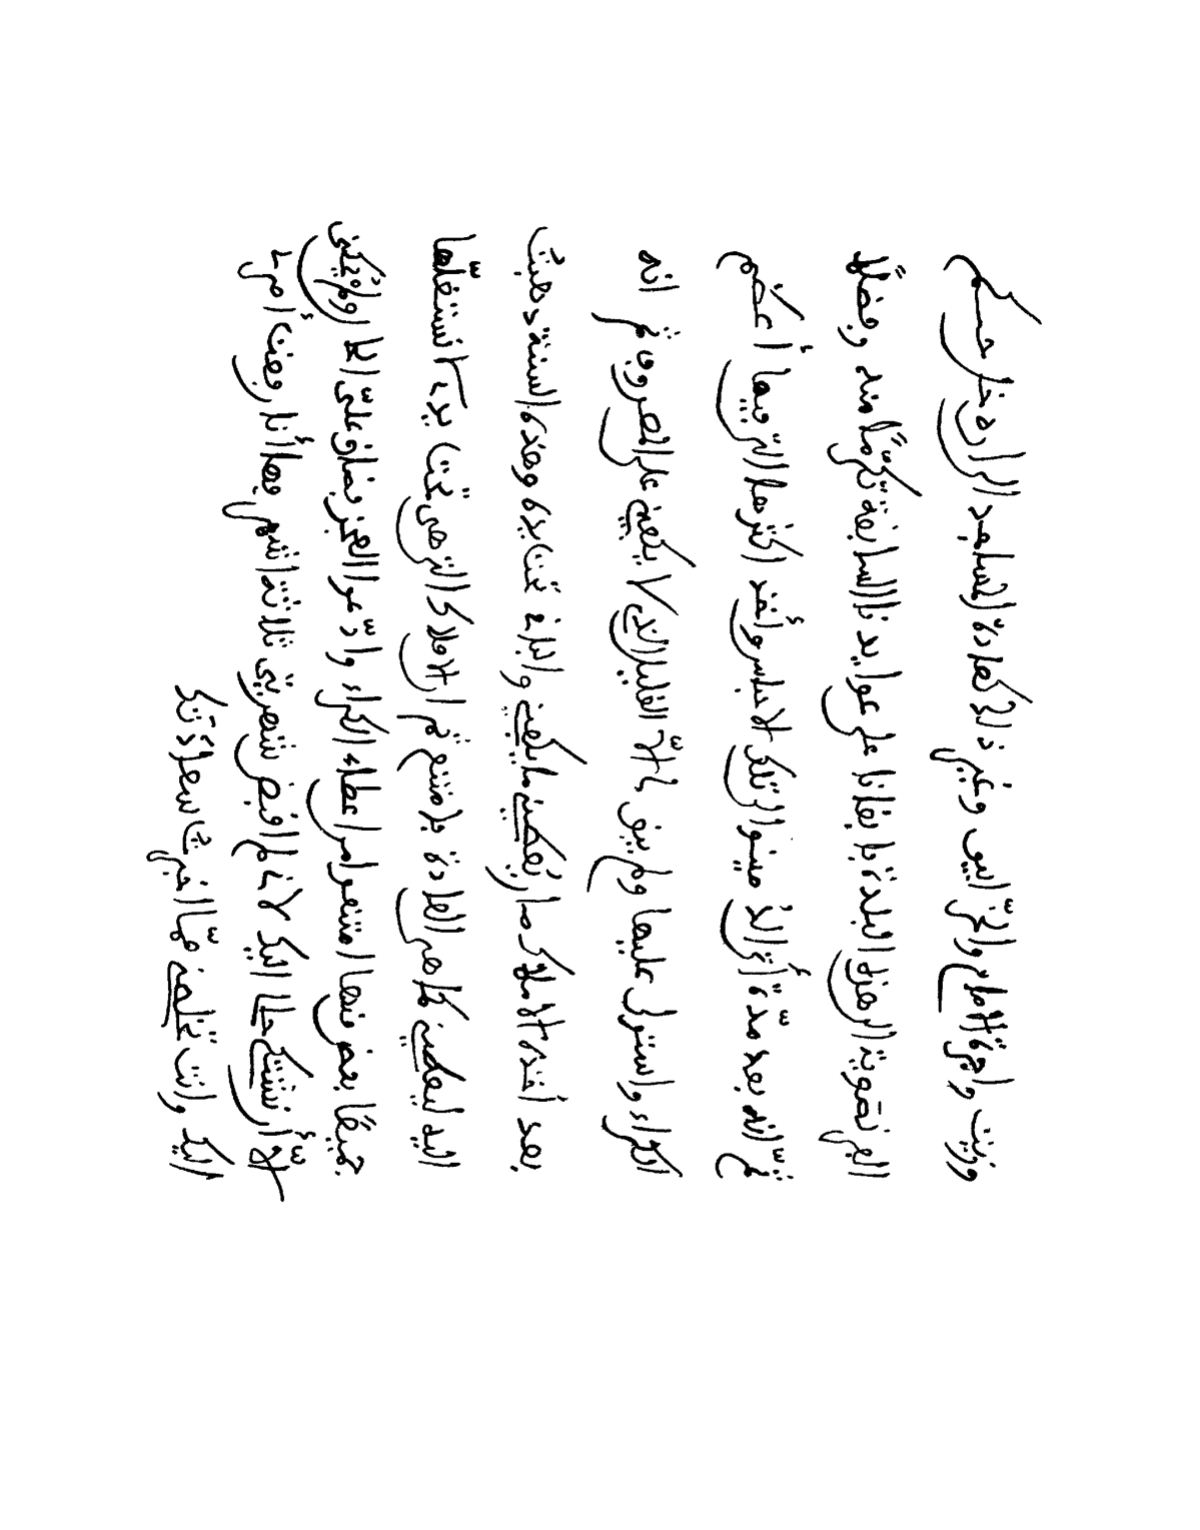 وزيت واجرة الامام والحزّابين وغير ذلك كعادة المساجد الى ان دخل حكم
البرنصوية الى هذه البلدة فابقانا على عوايدنا السابقة تكرّمًا منه وفضلًا
ثمّ انّه بعد مدّة أتى الدمينوا الى تلك الاحباس وأخذ اكثرها التى فيها أعضم
الكراء واستولى عليها ولم يبق لنا الّا القليل الذى لا يكفينى على المصروف ثم انه
بعد أخذه الاملاك صار يُعطينى ما يكفينى والباقى تحت يده وهذه السنة ذهبت
اليه ليعطينى كما هى العادة فامتنع ثم ان الاملاك التى هى تحت يدى لا نستغلّها
جميعًا بعض منها امتنعوا من اعطاء الكراء وادّعوا العجز فضاق علىّ الحال ولم يُمكنى
الّا أن نشتكى حالنا اليك لانى لم اقبض شهريتى ثلاثة اشهر فها أنا رفعت أمرى
اليك وانت تخلصنى ممّا اخبرت سعادتك